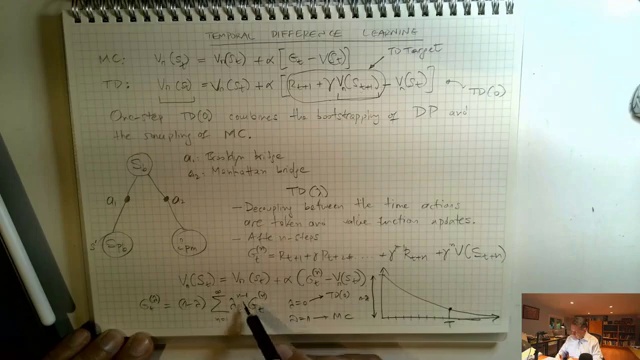 TEMPORAL DIFFERENCE LEARNING
MC: Vπ(St) = Vπ(St) + α [Gt - V(St)]
TD Target
TD: Vπ(St) = Vπ(St) + α [Rt+1 + γ Vπ(St+1) - Vπ(St)]
TD(0)
One-step TD(0) combines the bootstrapping of DP and
the sampling of MC.
S0
a1: Brooklyn bridge
a2: Manhattan bridge
a1
a2
TD(λ)
- Decoupling between the time actions
are taken and value function updates.
- After n-steps
Gt(n) = Rt+1 + γ Rt+2 + ... + γ^n-1 Rt+n + γ^n V(St+n)
Vπ(St) = Vπ(St) + α (Gt(λ) - Vπ(St))
1-λ
λ=0 → TD(0)
λ=1 → MC
T